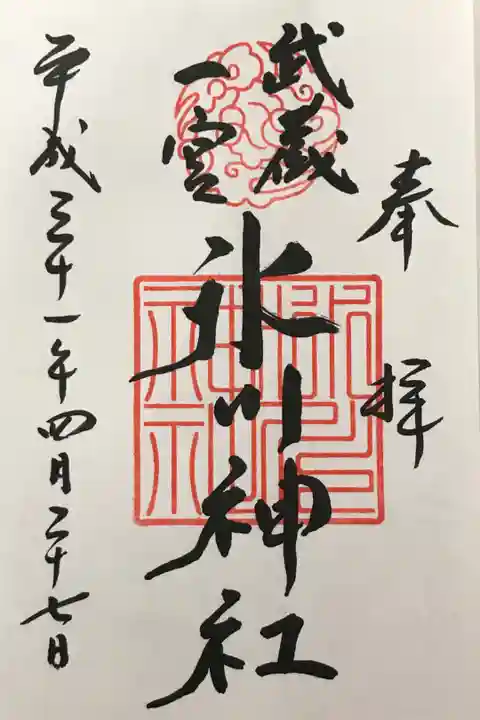 奉拝
武蔵
一宮
氷川神社
平成三十一年四月二十七日